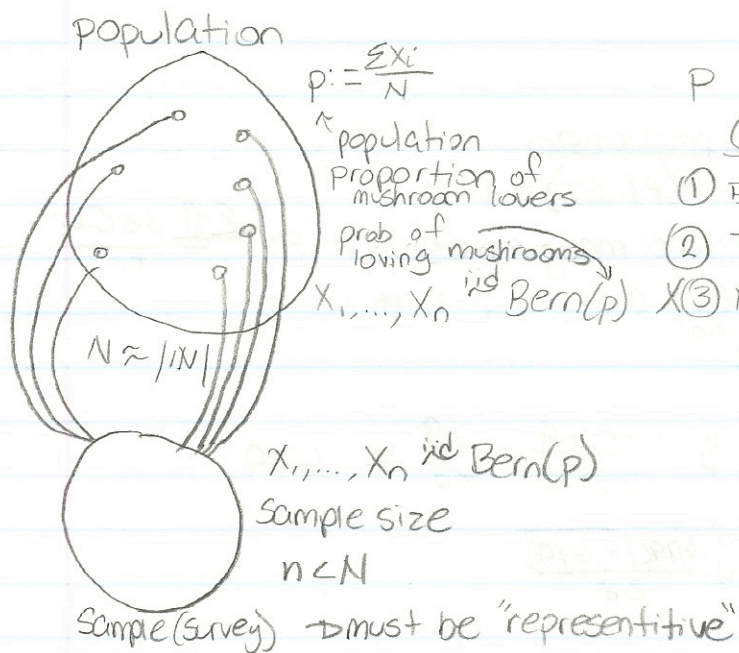 population
p := ΣXi / N
population
proportion of
mushroom lovers
prob of
loving mushrooms
X1, ..., Xn iid Bern(p)
N ≈ |ℕ|
X1, ..., Xn iid Bern(p)
sample size
n < N
Sample (survey) → must be "representitive"
P
①
②
X ③